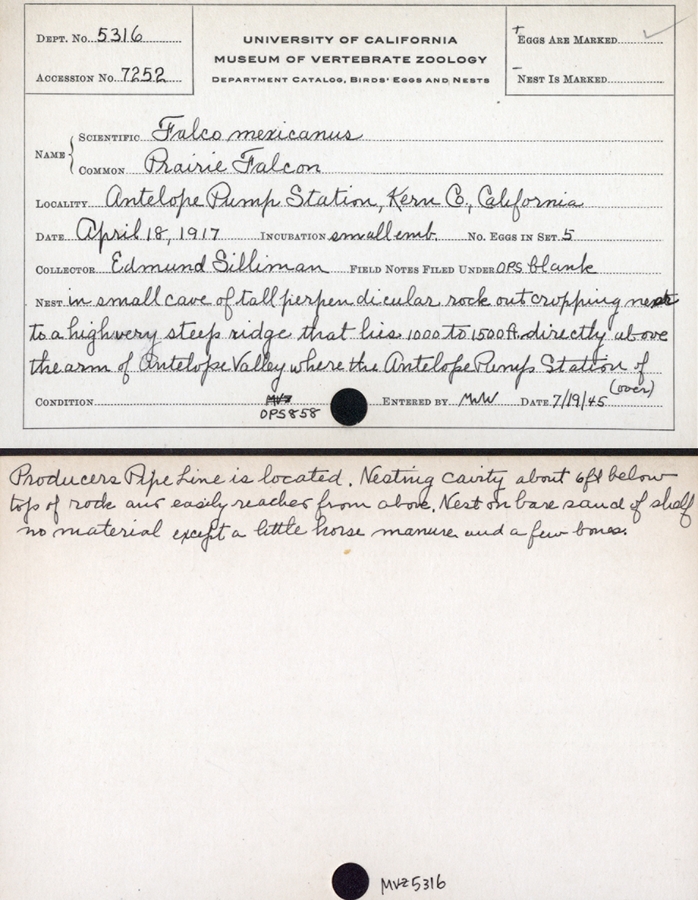 Dept. No. 5316
Accession No. 7252
UNIVERSITY OF CALIFORNIA
MUSEUM OF VERTEBRATE ZOOLOGY
Department Catalog, Birds' Eggs and Nests
+ Eggs Are Marked ✓
- Nest Is Marked
Name { Scientific Falco mexicanus
Common Prairie Falcon
Locality Antelope Pump Station, Kern Co., California
Date April 18, 1917 Incubation small emb. No. Eggs in Set 5
Collector Edmund Silliman Field Notes Filed Under OPS blank
Nest in small cave of tall perpendicular rock outcropping next
to a high very steep ridge that lies 1000 to 1500 ft. directly above
the arm of Antelope Valley where the Antelope Pump Station of
(over)
Condition MVZ Entered by MWW Date 7/19/45
OPS858
Producers Pipe Line is located. Nesting cavity about 6ft below
top of rock and easily reached from above. Nest on bare sand of shelf
no material except a little horse manure and a few bones.
MVZ 5316